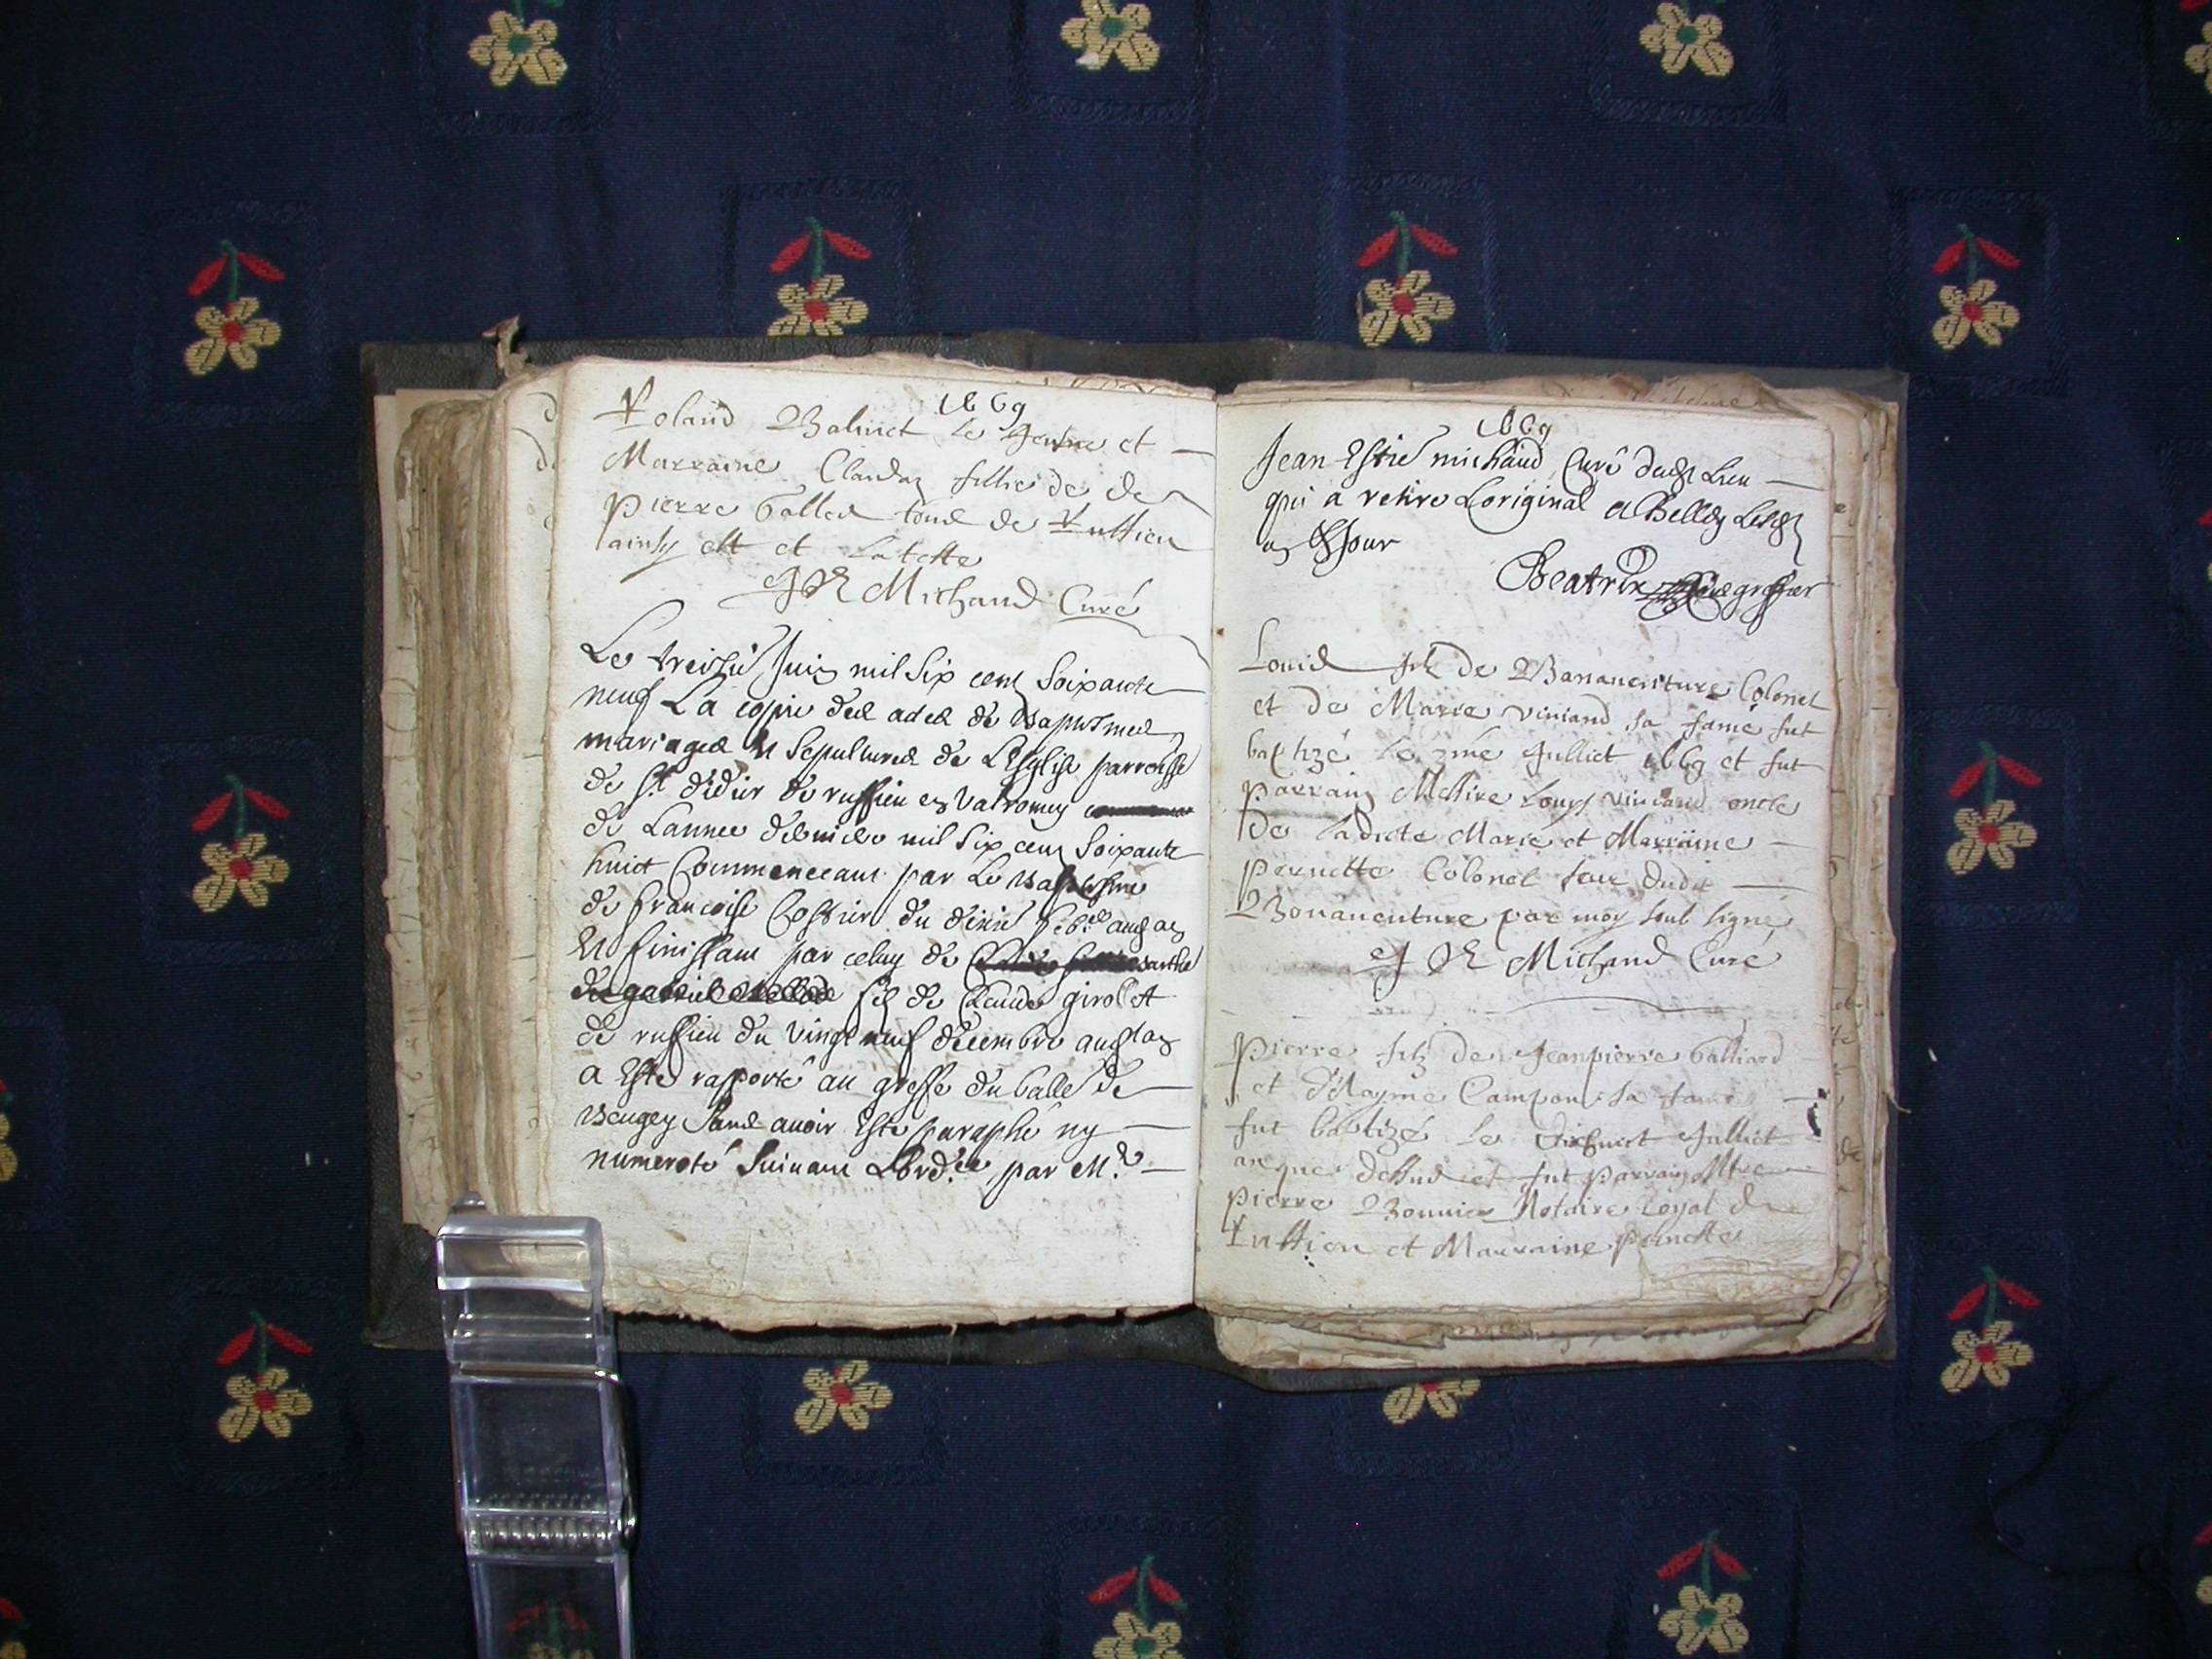 1669
Roland Balivet le Jeune et
Marraine Clauda fillie de
Pierre Galled tous de Ruffieu
ainsy est et Latteste
J E Michaud Curé
Le treisie Juin mil six cens soixante
neuf La copie des actes de Baptesmes
mariages et sepultures de LEsglise parroisse
de st didier de ruffieu en Valromey
de Lannee derniere mil six cens soixante
huict Commencant par Le Baptesme
de francoise du aud an
Et finissant par celuy de
fils de Claude girollet
de ruffieu du vingt neuf decembre aud an
a Esté rapporté au greffe du balle de
Beugey sans avoir Esté paraphé ny
numeroté suivant Lord.ce par M.e
1669
Jean Estie michaud Curé dud Lieu
qui a retiré Loriginal a Belley Lesd
an & Jour
Beatrix greffier
Louis filz de Banaventure Colonet
et de Marie viniand sa fame fut
baptizé le 3me Julliet 1669 et fut
parrain Messire Louys viniand oncle
de ladicte Marie et Marraine
pernette Colonet seur dudit
Bonaventure par moy soub signé
J E Michaud Curé
Pierre filz de Jeanpierre Galliard
et dAaymé Campon sa fame
fut batizé le dixhuict Julliet
an que dessus et fut parrain Mtre
Pierre Bonnier Notaire Royal de
Ruffieu et Marraine pernette